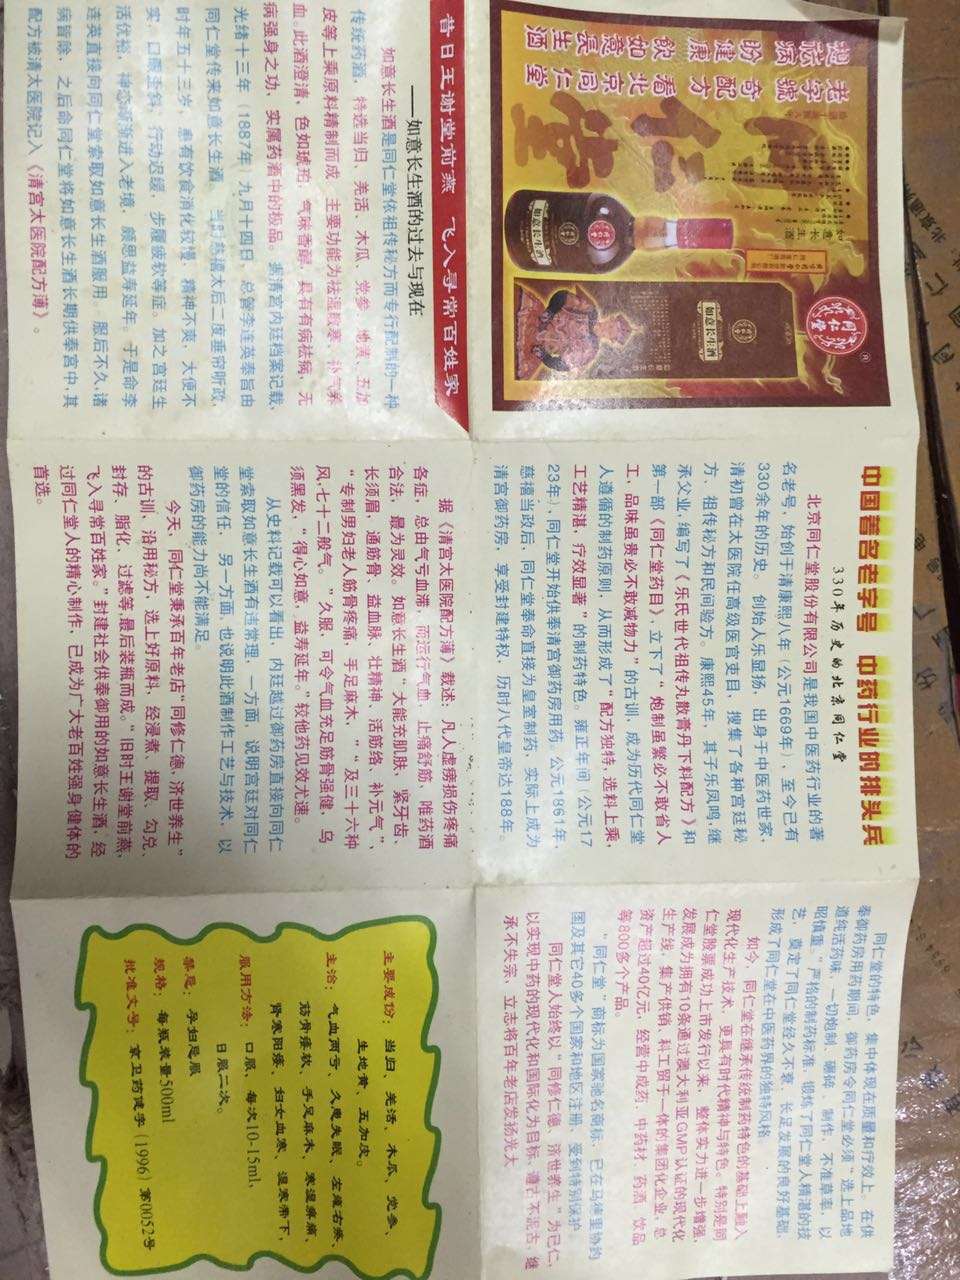 同仁堂
老字號
奇配方
看北京同仁堂
想祛病
盼健康
飲如意長生酒
如意长生酒
如意长生酒
中国著名老字号 中药行业的排头兵
330年历史的北京同仁堂
北京同仁堂股份有限公司是我国中医药行业的著
名老号，始创于清康熙八年（公元1669年），至今已有
330余年的历史。创始人乐显扬，出身于中医药世家，
清初曾在太医院任高级医官吏目，搜集了各种宫廷秘
方、祖传秘方和民间验方。康熙45年，其子乐凤鸣，继
承父业，编写了《乐氏世代祖传丸散膏丹下料配方》和
第一部《同仁堂药目》，立下了“炮制虽繁必不敢省人
工，品味虽贵必不敢减物力”的古训，成为历代同仁堂
人遵循的制药原则，从而形成了“配方独特，选料上乘，
工艺精湛，疗效显著”的制药特色。雍正年间（公元17
23年），同仁堂开始供奉清宫御药房用药。公元1861年，
慈禧当政后，同仁堂奉命直接为皇室制药，实际上成为
清宫御药房，享受封建特权，历时八代皇帝达188年。
同仁堂的特色，集中体现在质量和疗效上。在供
奉御药房用药期间，御药房令同仁堂必须“选上品地
道纯洁药味，一切炮制、碾碎、制作，不准草率，以
昭慎重。”严格的制药标准，锻炼了同仁堂人精湛的技
艺，奠定了同仁堂经久不衰、长足发展的良好基础，
形成了同仁堂在中医药界的独特风格。
如今，同仁堂在继承传统制药特色的基础上融入
现代化生产技术，更具有时代精神与特色。特别是同
仁堂股票成功上市发行以来，整体实力进一步增强，
发展成为拥有10条通过澳大利亚GMP认证的现代化
生产线，集产供销、科工贸于一体的集团化企业，总
资产超过40亿元，经营中成药、中药材、药酒、饮品
等800多个产品。
“同仁堂”商标为国家驰名商标，已在马德里协约
国及其它40多个国家和地区注册，受到特别保护。
同仁堂人始终以“同修仁德，济世养生”为己任，
以实现中药的现代化和国际化为目标，遵古不泥古，继
承不失宗，立志将百年老店发扬光大。
昔日王谢堂前燕 飞入寻常百姓家
——如意长生酒的过去与现在
如意长生酒是同仁堂依祖传秘方而专行配制的一种
传统药酒，特选当归、羌活、木瓜、党参、地黄、五加
皮等上乘原料精制而成，主要功能为祛湿散寒、补气养
血。此酒澄清，色如琥珀，气味香醇，具有有病祛病，无
病强身之功，实属药酒中的极品。据清宫内廷档案记载，
光绪十三年（1887年）九月十四日，总管李连英奉旨由
同仁堂传来如意长生酒。当时慈禧太后二度垂帘听政，
时年五十三岁，患有饮食消化较慢，精神不爽，大便不
实，口唇歪斜，行动迟缓，步履疲软等症。加之宫廷生
活优裕，神态渐渐进入老境，颇思益寿延年。于是命李
连英直接向同仁堂索取如意长生酒服用，服后不久，诸
病皆除，之后命同仁堂将如意长生酒长期供奉宫中，其
配方被清太医院记入《清宫太医院配方薄》。
据《清宫太医院配方薄》载述，凡人虚痨损伤疼痛
各症，总由气亏血滞，而运行气血，止痛舒筋，唯药酒
合法，最为灵效。如意长生酒“大能充肌肤，紧牙齿，
长须眉，通筋骨，益血脉，壮精神，活筋络，补元气”，
“专制男妇老人筋骨疼痛，手足麻木，”“及三十六种
风，七十二般气。”久服，可令气血充足筋骨强健，乌
须黑发，“得心如意，益寿延年。”较他药见效尤速。
从史料记载可以看出，内廷越过御药房直接向同仁
堂索取如意长生酒有违常理，一方面，说明宫廷对同仁
堂的信任，另一方面，也说明此酒制作工艺与技术，以
御药房的能力尚不能满足。
今天，同仁堂秉承百年老店“同修仁德，济世养生”
的古训，沿用秘方，选上好原料，经浸煮、提取、勾兑、
封存、脂化、过滤等最后装瓶而成。“旧时王谢堂前燕，
飞入寻常百姓家。”封建社会供奉御用的如意长生酒，经
过同仁堂人的精心制作，已成为广大老百姓强身健体的
首选。
主要成份：当归、羌活、木瓜、党参、
生地黄、五加皮。
主治：气血两亏，久虑失眠、左瘫右痪、
筋骨痿软、手足麻木、寒湿痹痛、
肾寒阳痿、妇女血寒、湿寒带下。
服用方法：口服、每次10-15ml，
日服二次。
禁忌：孕妇忌服
规格：每瓶装量500ml
批准文号：京卫药健字（1996）第0052号